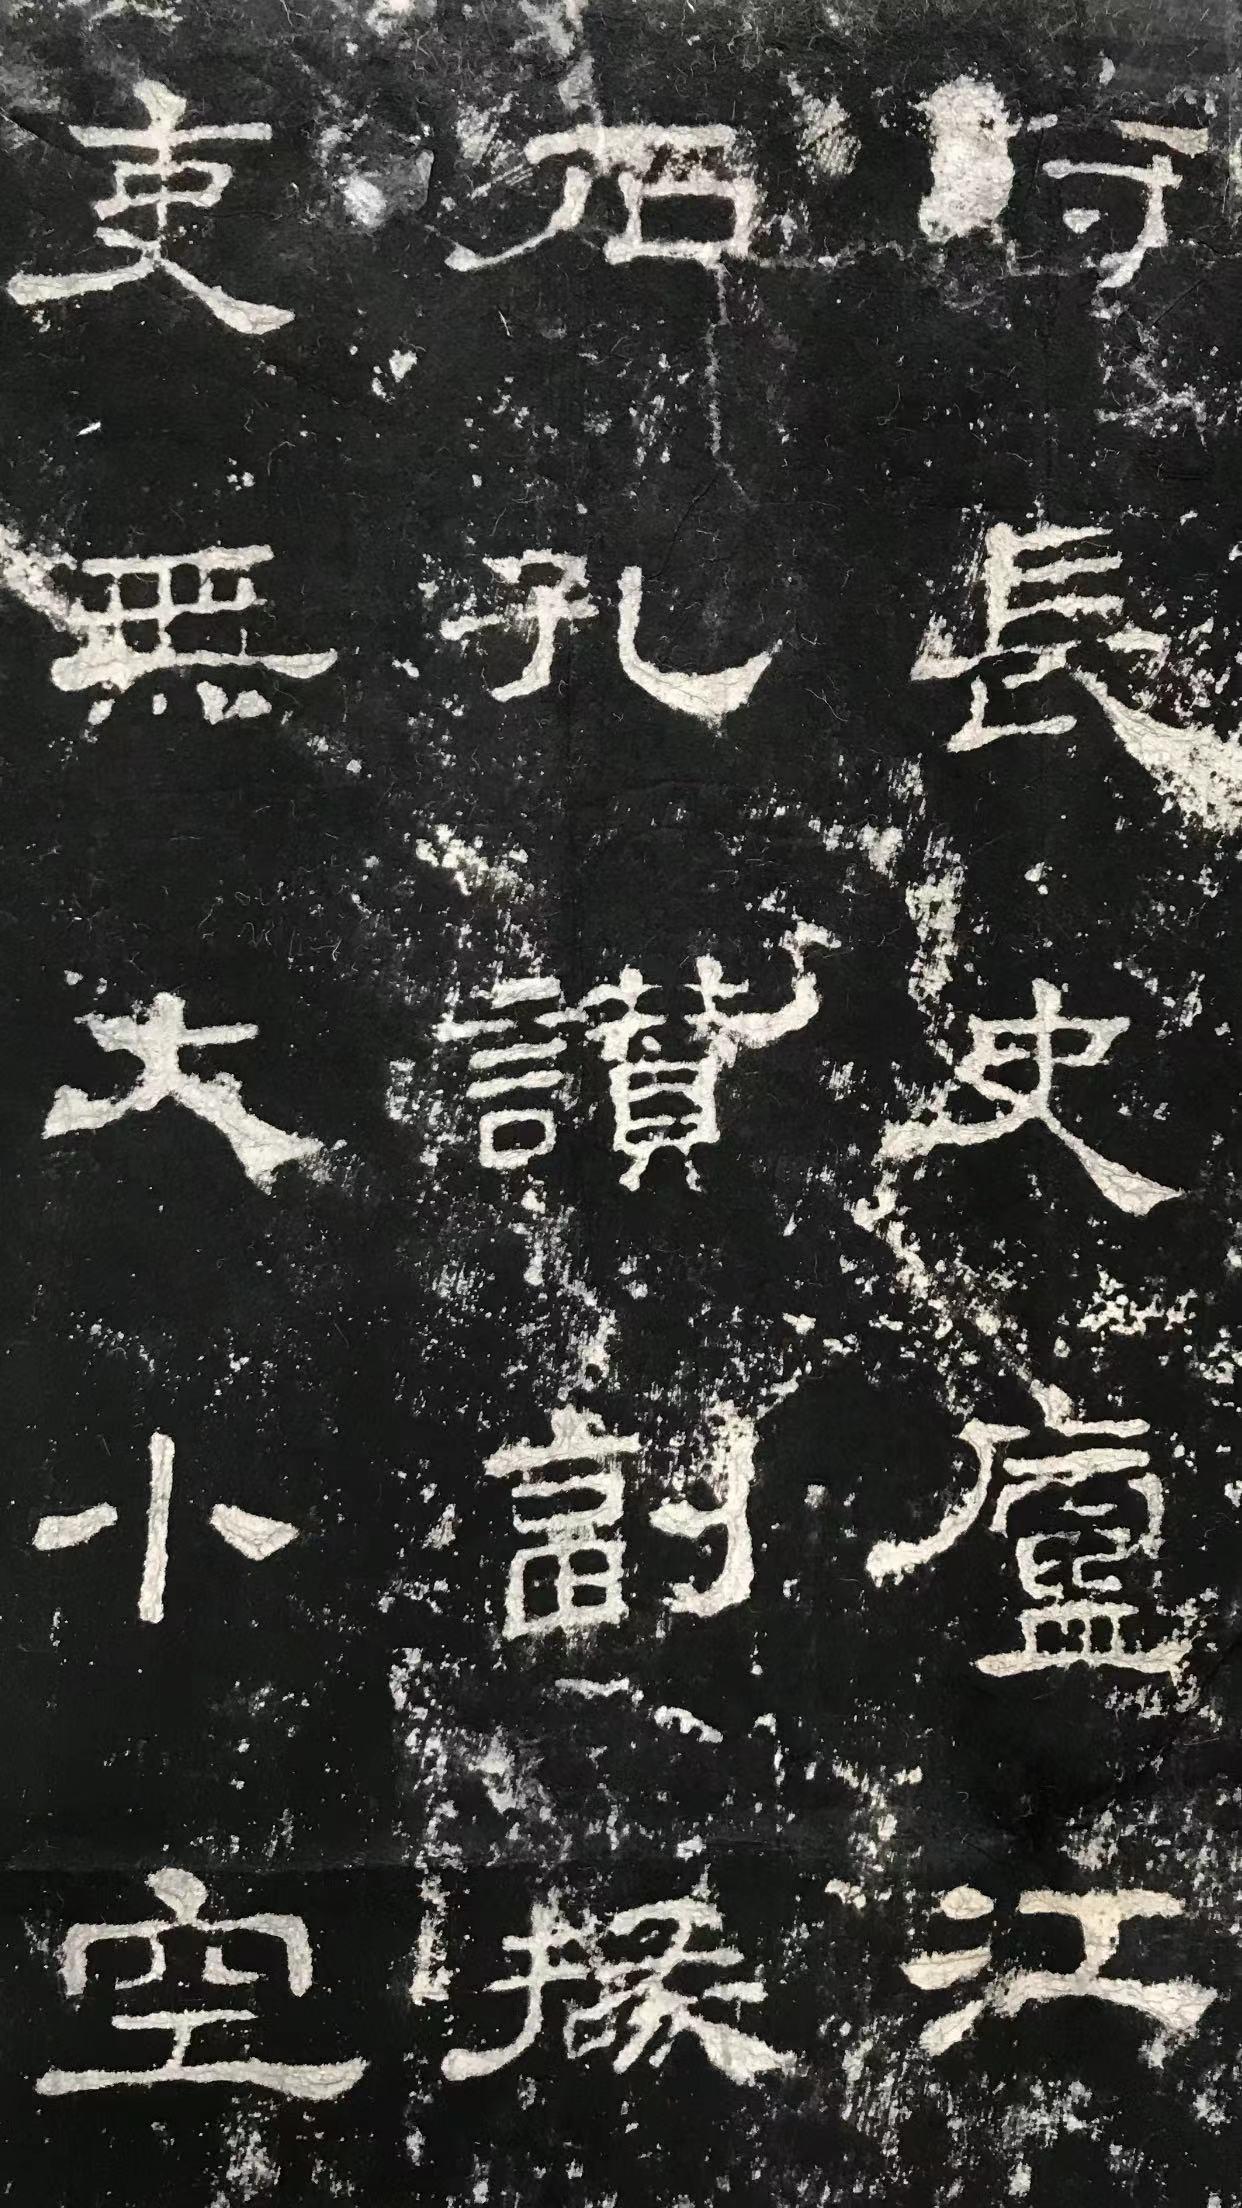 時長史廬江
石孔讚副掾
吏無大小空